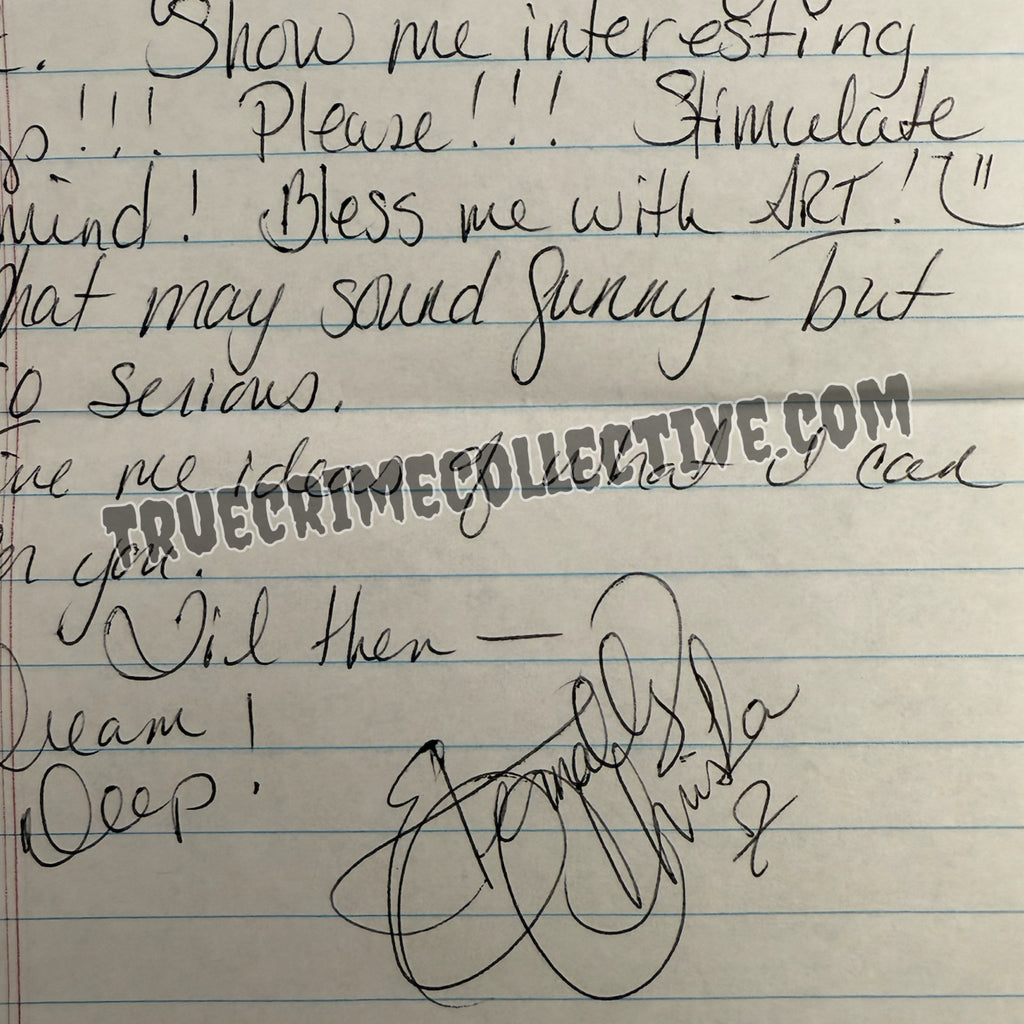 . Show me interesting
!!! Please!!! Stimulate
mind! Bless me with ART!
hat may sound funny - but
o serious.
ive me ideas of what I can
TRUECRIMECOLLECTIVE.COM
you.
'Til then —
Dream!
Deep.
Eternally,
Christa